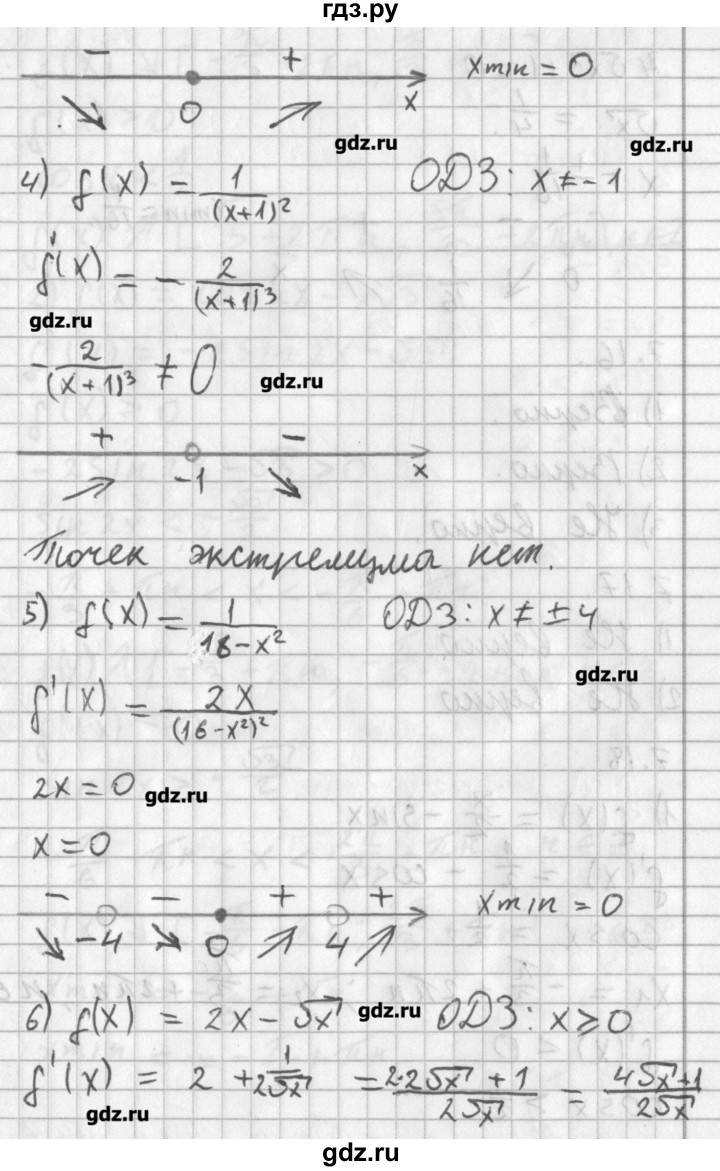 гдз.ру
− + xmin = 0
0 x
gdz.ru gdz.ru
4) f(x) = 1/(x+1)² ОДЗ: x ≠ -1
f'(x) = - 2/(x+1)³
gdz.ru
- 2/(x+1)³ ≠ 0 gdz.ru
+ −
-1 x
Точек экстремума нет.
5) f(x) = 1/(16-x²) ОДЗ: x ≠ ± 4
gdz.ru
f'(x) = 2x/(16-x²)²
2x = 0 gdz.ru
x = 0
− − + + xmin = 0
-4 0 4
6) f(x) = 2x - √x gdz.ru ОДЗ: x ⩾ 0
f'(x) = 2 + 1/2√x = 2·2√x + 1/2√x = 4√x+1/2√x
gdz.ru
gdz.ru